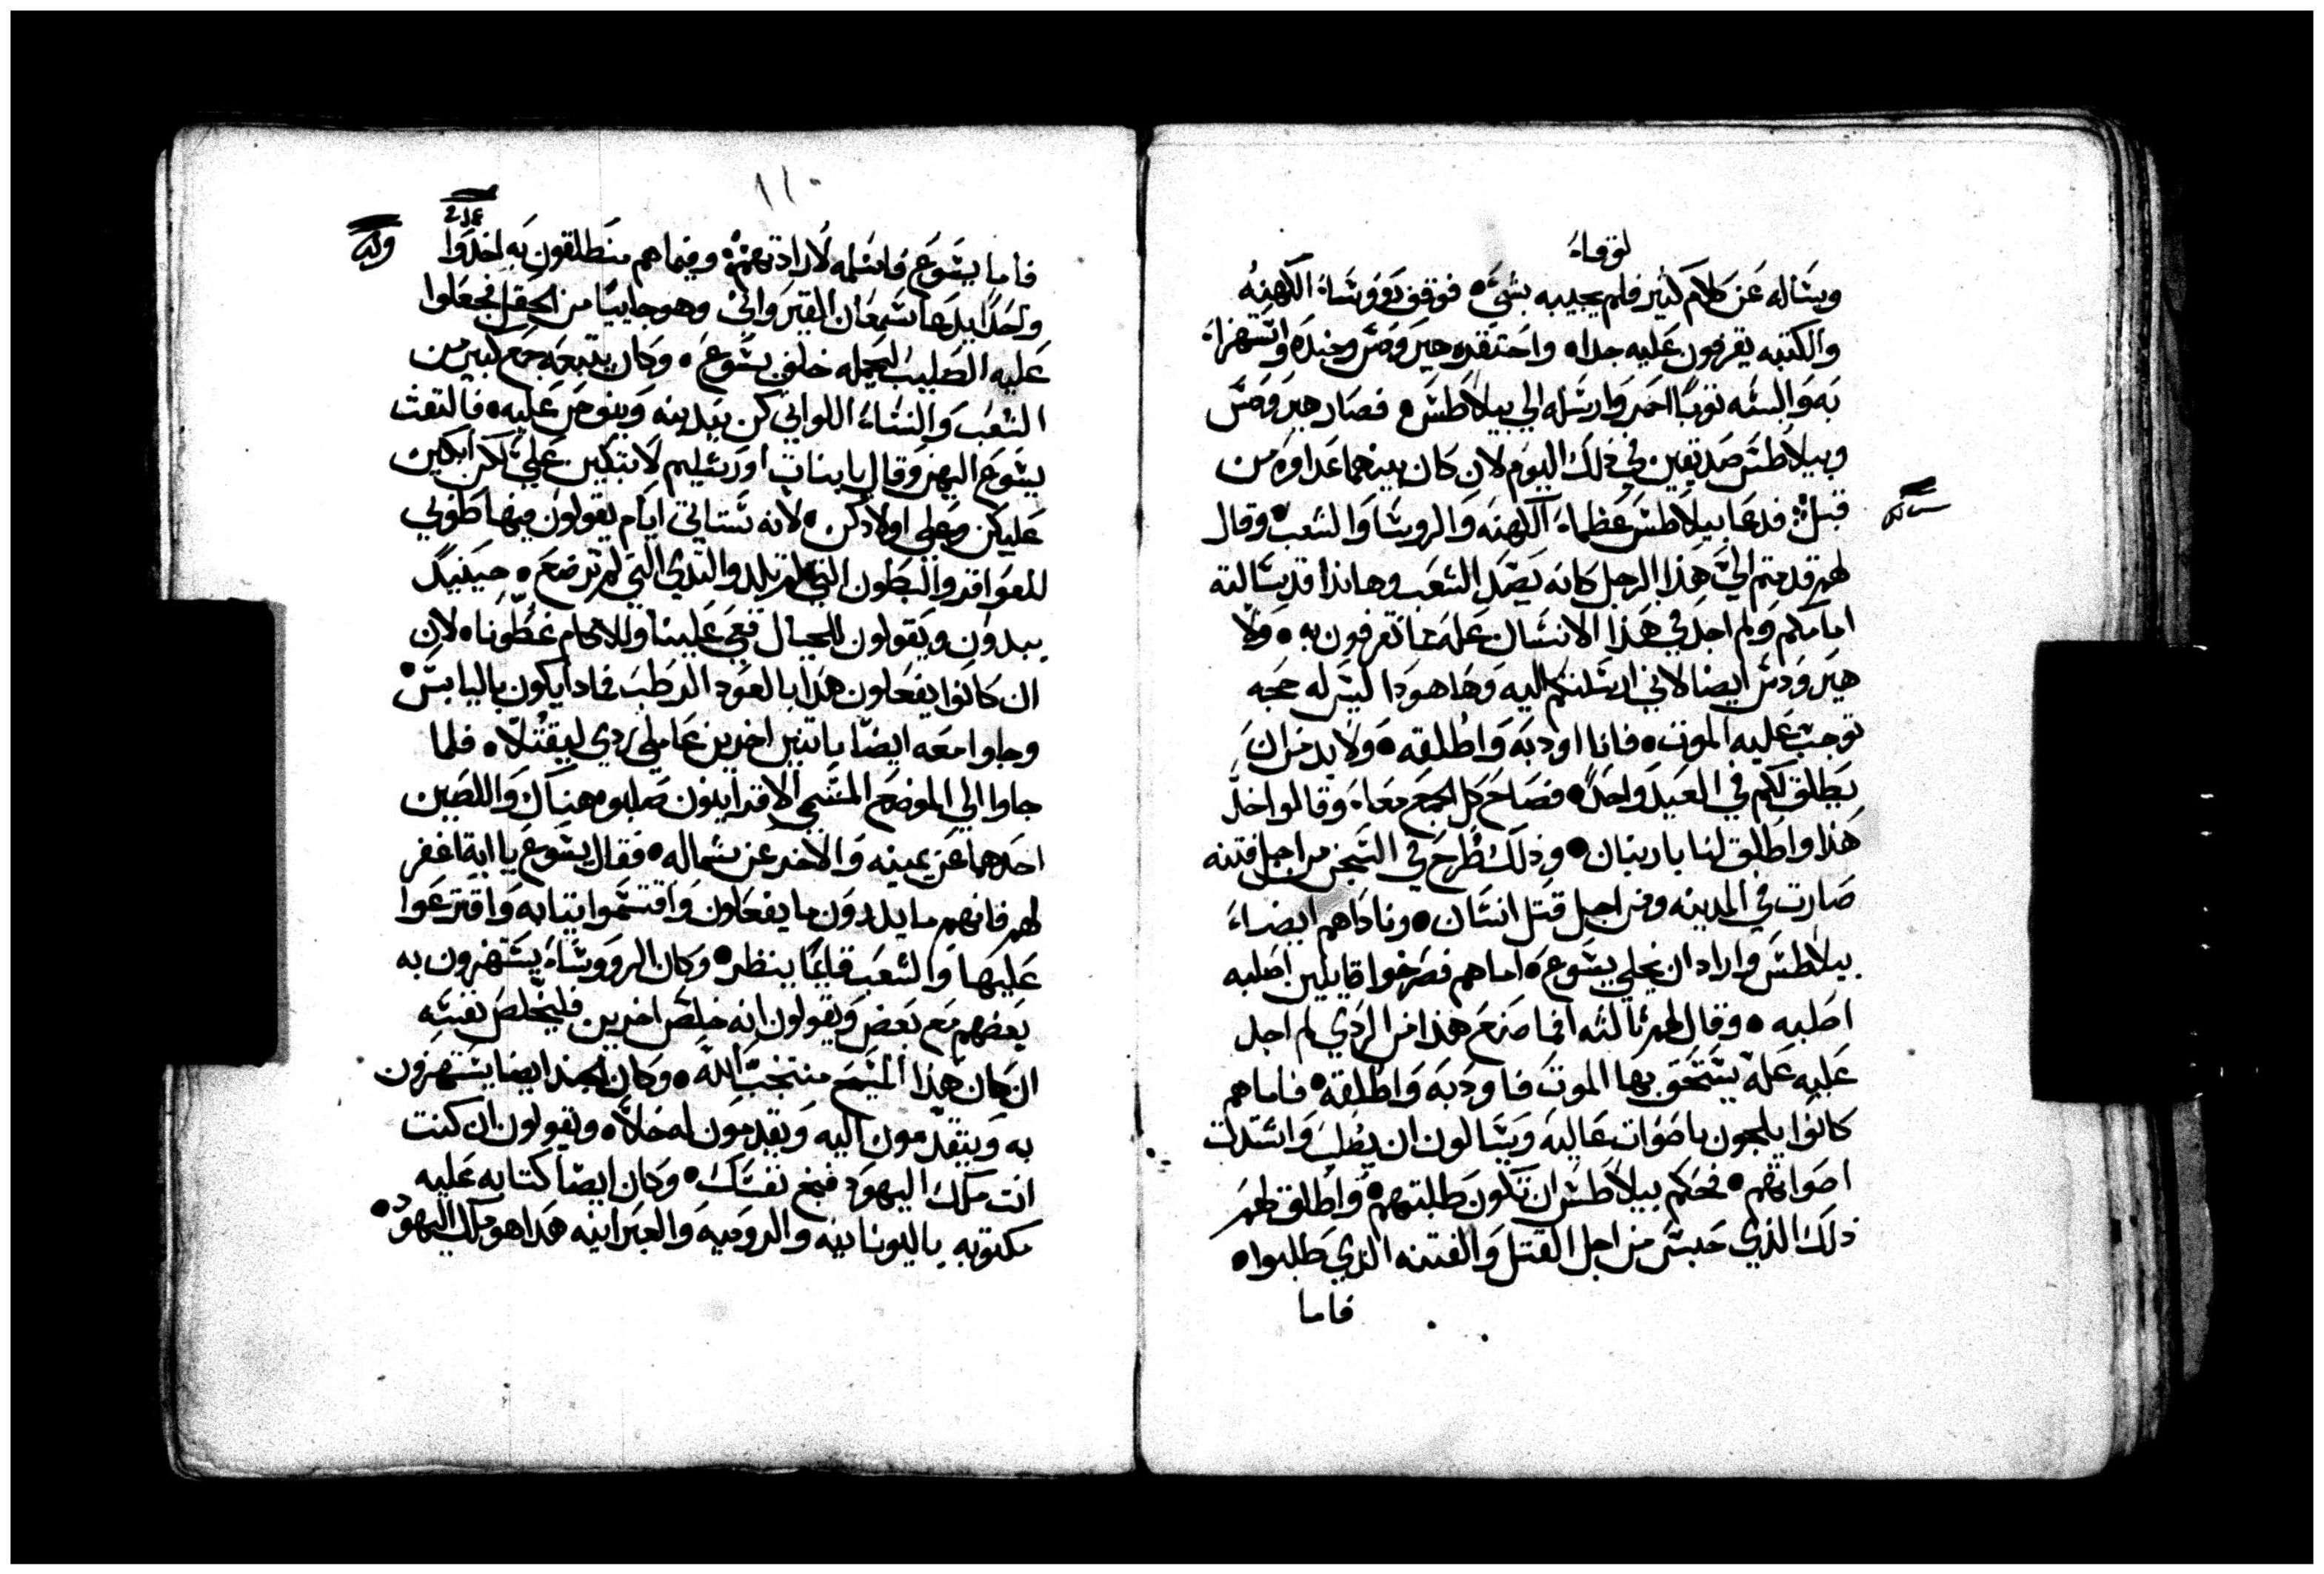 لوقا
ويساله عن كلام كثير فلم يجيبه بشي فوقف رووسا الكهنه
والكتبه يقرفون عليه جدا واحتقره هيرودس وجنده واستهزا
به والبسه توبا احمر وارسله الي بيلاطس فصار هيرودس
وبيلاطس صديقين في ذلك اليوم لان كان بينهما عداوه من
قبل فدعا بيلاطس عظما الكهنه والروسا والشعب وقال
لهم قدمتم الي هذا الرجل كانه يصد الشعب وهانذا قد سالته
امامكم ولم اجد في هذا الانسان عله مما تقرفون به ولا
هيرودس ايضا لاني ارسلتكم اليه وها هودا ليس له حجه
توجب عليه الموت فانا اودبه واطلقه ولا بد من ان
يطلق لكم في العيد واحدا فصاح كل الجمع معا وقالوا خد
هذا واطلق لنا باربنان وذلك طرح في السجن من اجل فتنه
صارت في المدينه ومن اجل قتل انسان وناداهم ايضا
بيلاطس واراد ان يخلي يسوع اما هم فصرخوا قايلين اصلبه
اصلبه وقال لهم ثالثه انما صنع هذا من الردي لم اجد
عليه عله يستحق بها الموت فاودبه واطلقه فاما هم
كانوا يلجون باصوات عاليه ويسالون ان يصلب واشتدت
اصواتهم فحكم بيلاطس ان تكون طلبتهم واطلق لهم
ذلك الذي حبس من اجل القتل والفتنه الذي طلبوا
فاما
١١٠
فاما يسوع فاسلمه لارادتهم وفيما هم منطلقون به اخدوا
واحدا يدعا سمعان القيرواني وهو جاييا من الحقل فجعلوا
عليه الصليب ليحمله خلف يسوع وكان يتبعه جمع كبير من
الشعب والنسا اللواتي كن يندبنه وينوحن عليه فالتفت
يسوع اليهن وقال يا بنات اورشليم لا تبكين علي لكن ابكين
عليكن وعلي اولادكن لانه ستاتي ايام يقولون فيها طوبي
للعواقر والبطون التي لم تلد والتدي التي لم ترضع حينيد
يبدون ويقولون للجبال قعي علينا وللاكام غطونا لان
ان كانوا يفعلون هدا بالعود الرطب فمادا يكون باليابس
وجاوا معه ايضا باتنين اخرين عاملي ردي ليقتلا فلما
جاوا الي الموضع المسمي الاقرانيون صلبوه هناك واللصين
احدهما عن يمينه والاخر عن شماله فقال يسوع يا ابة اغفر
لهم فانهم ما يدرون ما يفعلون واقتسموا تيابه واقترعوا
عليها والشعب قايما ينظر وكان الرووسا يستهزون به
بعضهم مع بعض ويقولون انه خلص اخرين فليخلص نفسه
ان كان هذا المسيح منتخب الله وكان الجند ايضا يستهزون
به ويتقدمون اليه ويقدمون له خلا ويقولون ان كنت
انت ملك اليهود فنج نفسك وكان ايضا كتابه عليه
مكتوبه باليونانيه والروميه والعبرانيه هدا هو ملك اليهود